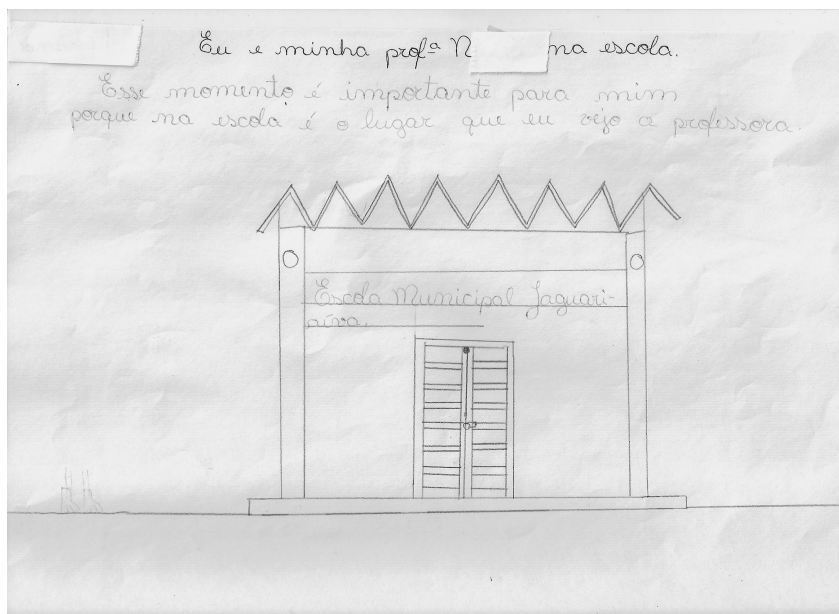 Eu e minha profª N na escola.
Esse momento é importante para mim
porque na escola é o lugar que eu vejo a professora.
Escola Municipal Jaguari-
aíva.